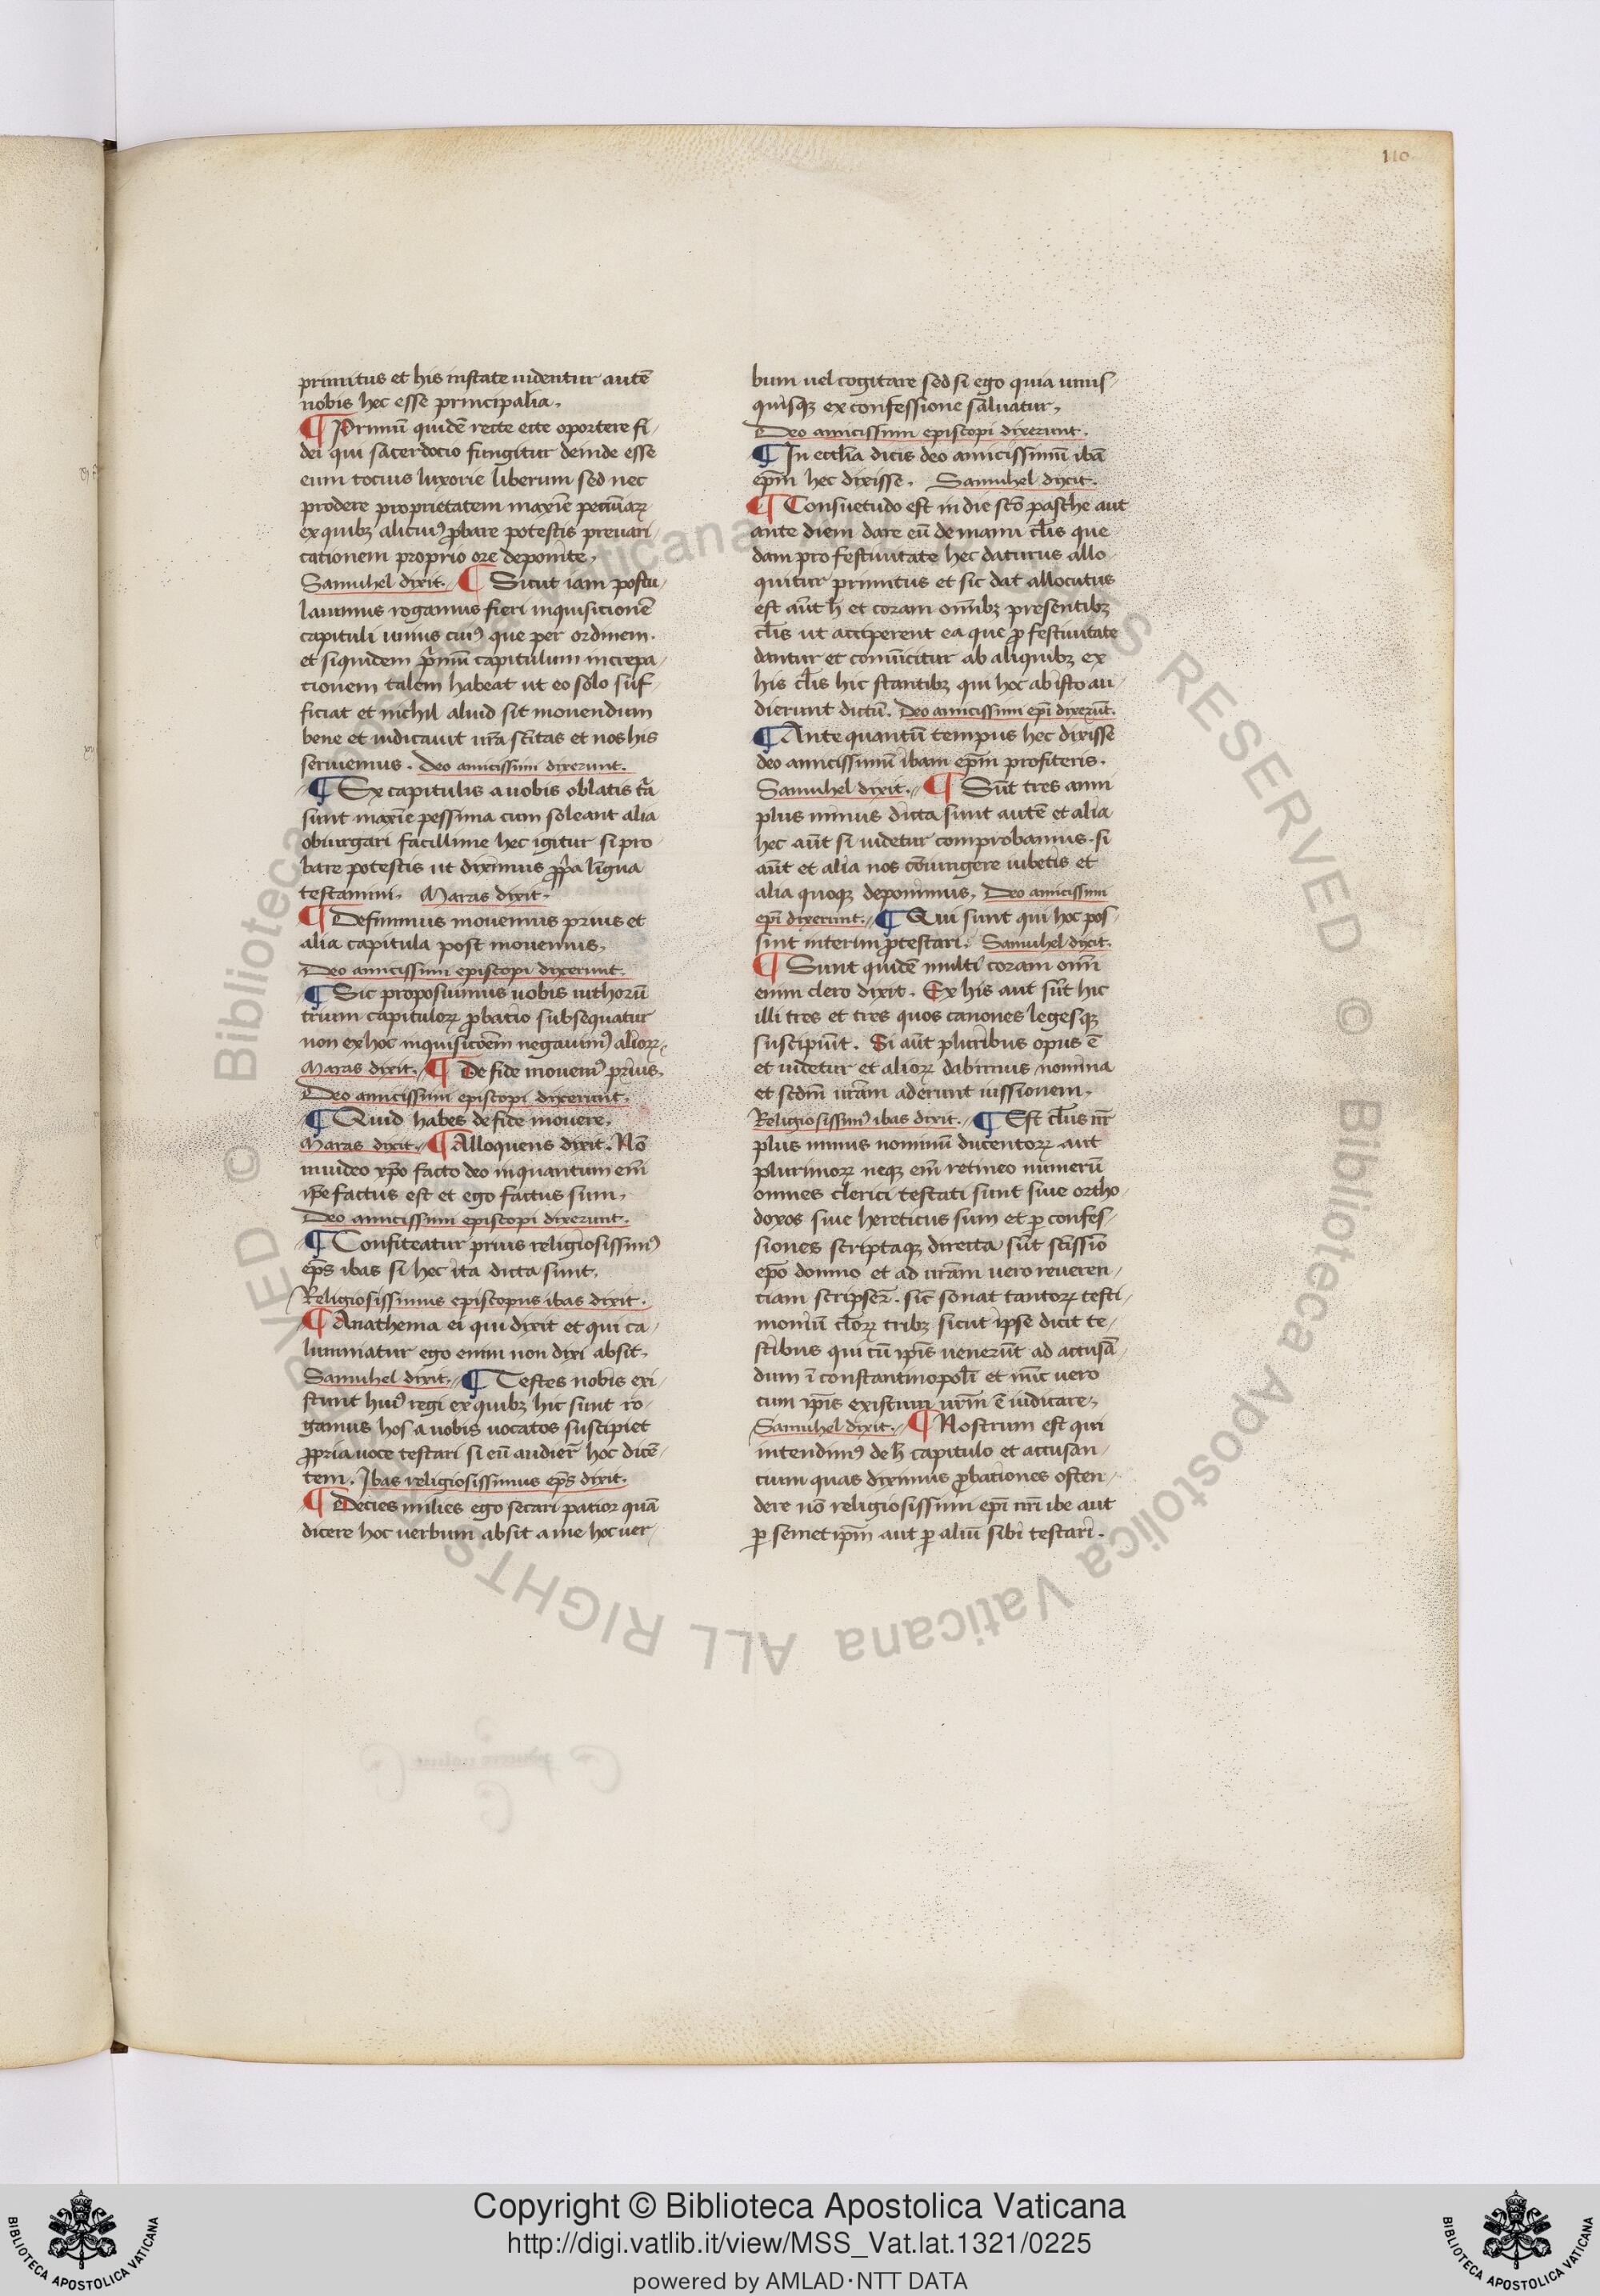 110
primitus et his instate uidentur autē
nobis hec esse principalia.
¶ Primū quidē recte ecte oportere fi-
dei qui sacerdocio fungitur deinde esse
eum tocius luxorie liberum sed nec
prodere proprietatem maxīe pecuniaꝝ
ex quibꝫ alicuiꝰ ꝓbare potestis preuari-
cationem proprio ore deponite.
Samuhel dixit. ¶ Sicut iam postu-
lauimus rogamus fieri inquisicionē
capituli unius cuiꝰ que per ordinem.
et siquidem pͥmū capitulum increpa-
cionem talem habeat ut eo solo suf-
ficiat et nichil aliud sit mouendum
bene et iudicauit ūra sc̄itas et nos his
seruiemus. Deo amicissimi dixerunt.
¶ Ex capitulis a uobis oblatis tͥa
sunt maxīe pessima cum soleant alia
obiurgari facillime hec igitur si pro-
bare potestis ut diximus ꝓp̄a lingua
testamini. Maras dixit.
¶ Definimus mouemus prius et
alia capitula post mouemus.
Deo amicissimi episcopi dixerunt.
¶ Sic proposuimus uobis ut horū
trium capituloꝝ ꝓbatio subsequatur
non ex hoc inquisicōem negauimꝰ alioꝝ.
Maras dixit. ¶ De fide mouemꝰ prius.
Deo amicissimi episcopi dixerunt.
¶ Quid habes de fide mouere.
Maras dixit. ¶ Alloquens dixit. Nō
inuideo xp̄o facto deo inquantum em̄
ip̄e factus est et ego factus sum.
Deo amicissimi episcopi dixerunt.
¶ Confiteatur prius religiosissimꝰ
ep̄s ibas si hec ita dicta sunt.
Religiosissimus episcopus ibas dixit.
¶ Anathema ei qui dixit et qui ca-
lumniatur ego enim non dixi absit.
Samuhel dixit. ¶ Testes nobis exi-
stunt huiꝰ regi ex quibꝫ hic sunt ro-
gamus hos a uobis uocatos suscipiet
ꝓpria uoce testari si eū audier̄ hoc dicē-
tem. Ibas religiosissimus ep̄s dixit.
¶ Decies milies ego secari patior quā
dicere hoc uerbum absit a me hoc uer-
bum uel cogitare sed si ego quia unus-
quisqꝫ ex confessione saluatur.
Deo amicissimi episcopi dixerunt.
¶ In eccl̄ia dicis deo amicissimū ibā
ep̄m hec dixisse. Samuhel dixit.
¶ Consuetudo est in die sc̄o pasche aut
ante diem dare eū de manu cl̄is que
dam pro festiuitate hec daturus allo
quitur primitus et sic dat allocutus
est aūt h̄ et coram om̄ibꝫ presentibꝫ
cl̄is ut acciperent ea que ꝑ festiuitate
dantur et conuīcitur ab aliquibꝫ ex
his cl̄is hic stantibꝫ qui hoc ab isto au-
dierunt dictū. Deo amicissimi ep̄i dixerūt.
¶ Ante quantū tempus hec dixisse
deo amicissimū ibam ep̄m profiteris.
Samuhel dixit. ¶ Sūt tres anni
plus minus dicta sunt autē et alia
hec aūt si uidetur comprobamus. si
aūt et alia nos cōiungere iubetis et
alia quoqꝫ deponimus. Deo amicissimi
ep̄i dixerunt. ¶ Qui sunt qui hoc pos-
sint interim ꝓtestari. Samuhel dixit.
¶ Sunt quidē multi coram omī
enim clero dixit. Ex his aut sūt hic
illi tres et tres quos canones legesqꝫ
suscipiūt. Si aūt pluribus opus ē
et uidetur et alioꝝ dabimus nomina
et sc̄dm̄ ūram aderunt iussionem.
Religiosissimꝰ ibas dixit. ¶ Est cl̄us nr̄
plus minus nominū ducentoꝝ aut
plurimoꝝ neqꝫ em̄ retineo numerū
omnes clerici testati sunt siue ortho-
doxos siue hereticus sum et ꝑ confes-
siones scriptaqꝫ directa sūt sc̄issīo
ep̄o domno et ad ūram uero reueren-
ciam scripser̄. sic̄ sonat tantoꝝ testi-
moniū cl̄oꝝ tribꝫ sicut ipse dicit te-
stibus qui cū ip̄is uenerūt ad accusā-
dum ī constantinopolī et nūc uero
cum ip̄is existunt ūrm̄ ē iudicare.
Samuhel dixit. ¶ Nostrum est qui
intendimꝰ de h̄ capitulo et accusan-
tium quas diximus ꝓbationes osten-
dere nō religiosissimi ep̄i nr̄i ibe aut
ꝑ semet ip̄m aut ꝑ aliū sibi testari.
© Biblioteca Apostolica Vaticana ALL RIGHTS RESERVED
© Biblioteca Apostolica Vaticana ALL RIGHTS RESERVED
Copyright © Biblioteca Apostolica Vaticana
http://digi.vatlib.it/view/MSS_Vat.lat.1321/0225
powered by AMLAD·NTT DATA
BIBLIOTECA APOSTOLICA VATICANA
BIBLIOTECA APOSTOLICA VATICANA